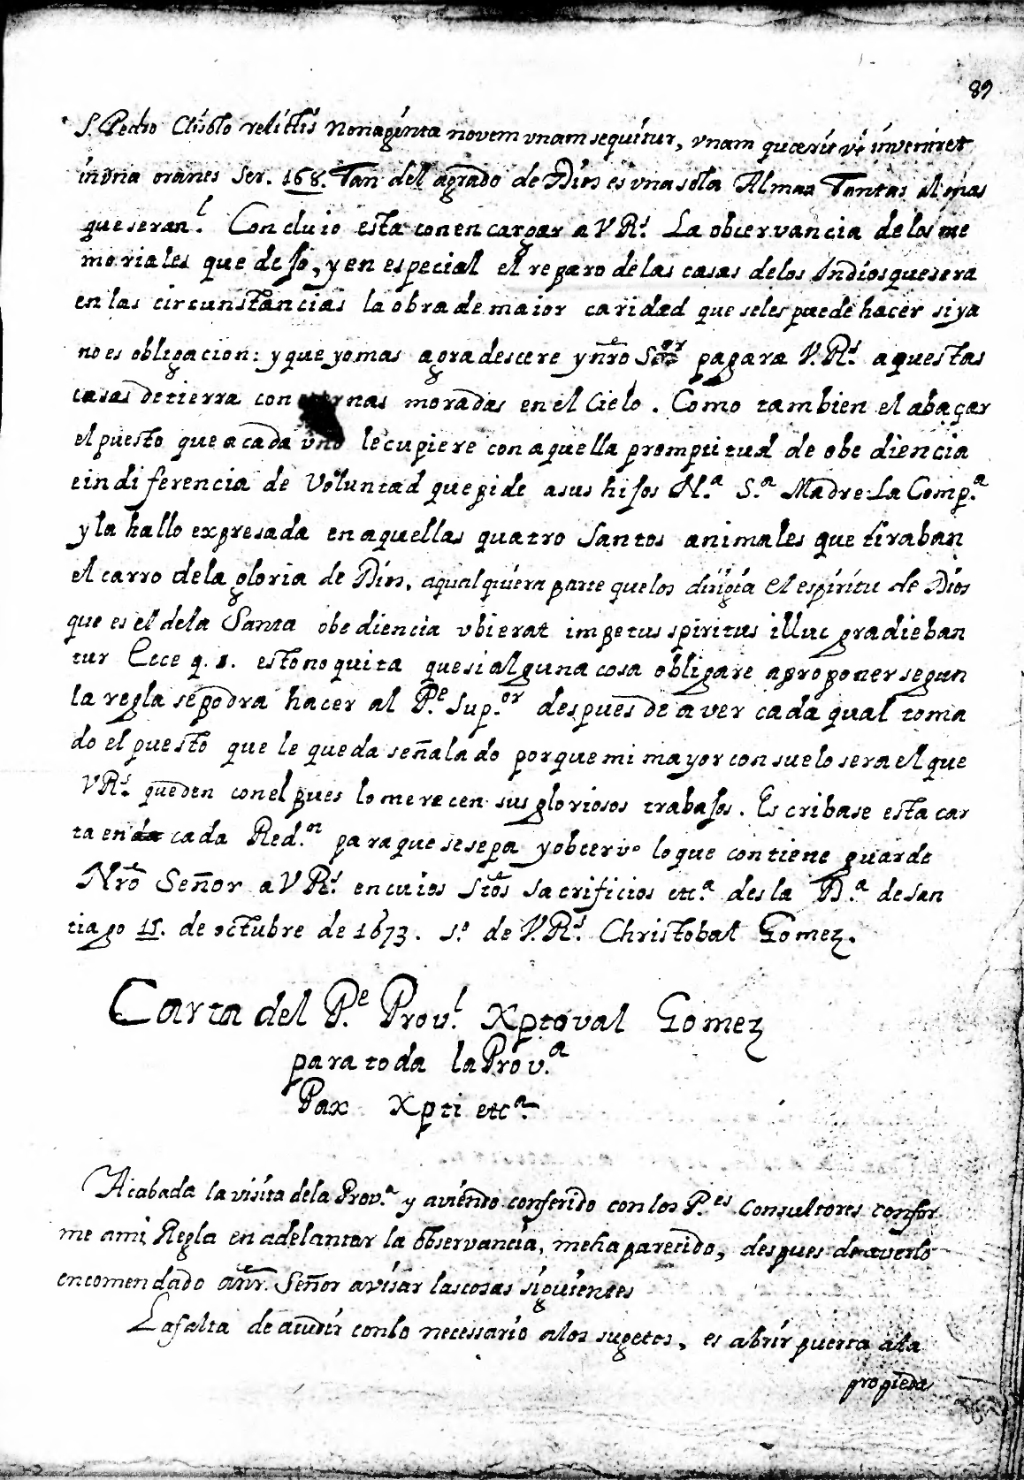 89
S. Pedro Chrisolo relictis nonaginta novem vnam sequitur, vnam quaerit vt inveniret
in vna omnes Ser. 168. Tan del agrado de Dios es vna sola Alma Tantas almas
que seran.l Concluio esta con encargar a V Rs. La observancia de los me
moriales que dejo, y en especial el reparo de las casas de los Indios que sera
en las circunstancias la obra de maior caridad que seles puede hacer si ya
no es obligacion: y que yo mas agradescere y nro Sor pagara V. Rs. aquestas
casas de tierra con eternas moradas en el Cielo. Como tambien el abaçar
el puesto que a cada vno le cupiere con aquella promptitud de obediencia
e indiferencia de Voluntad que pide a sus hijos N.a S.a Madre La Comp.a
y la hallo expresada en aquellas quatro Santos animales que tiraban
el carro de la gloria de Dios, a qualquiera parte que los dirigia el espiritu de Dios
que es el de la Santa obediencia vbi erat impetus spiritus illuc gradieban
tur Ece q. 1. esto no quita que si alguna cosa obligare a proponer segun
la regla se podra hacer al P.e Sup.or despues de aver cada qual toma
do el puesto que le queda señalado porque mi mayor consuelo sera el que
V Rs. queden con el pues lo merecen sus gloriosos trabajos. Escribase esta car
ta en cada Red.on para que se sepa y observe lo que contiene guarde
Nro Señor a V Rs. en cuios Stos Sacrificios etc.a des la D.a de San
tiago 15. de octubre de 1673. S.o de V. Rs. Christobal Gomez.
Carta del P.e Prov.l Xptoval Gomez
para toda la Prov.a
Pax Xpti etc.a
Acabada la visita de la Prov.a y aviendo conferido con los P.es Consultores confor
me a mi Regla en adelantar la observancia, me ha parecido, despues de averlo
encomendado a nr. Señor avisar las cosas siguientes
La falta de acudir con lo necessario a los sugetos, es abrir puerta a la
propieda